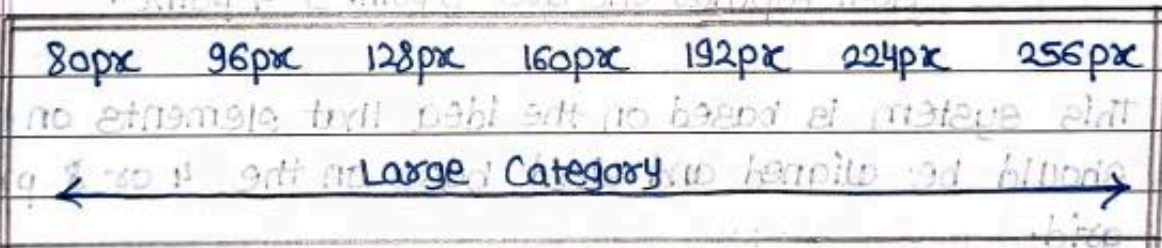 80px 96px 128px 160px 192px 224px 256px
Large Category